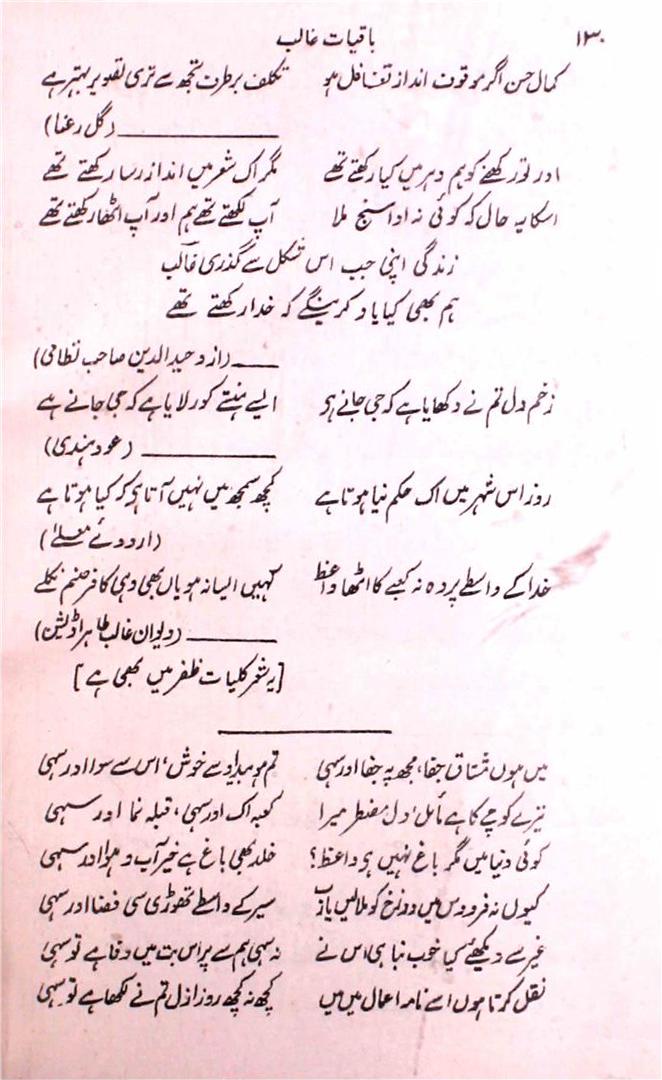 ۱۳۰ باقیات غالب
کمال حسن اگر موقوف انداز تغافل ہو تکلف برطرف تجھ سے تری تصویر بہتر ہے
(گل رعنا)
اور تو رکھنے کو ہم دہر میں کیا رکھتے تھے مگر اک شعر میں انداز رسا رکھتے تھے
اسکا یہ حال کہ کوئی نہ ادا سنج ملا آپ لکھتے تھے ہم اور آپ اٹھا رکھتے تھے
زندگی اپنی جب اس شکل سے گذری غالب
ہم بھی کیا یاد کرینگے کہ خدا رکھتے تھے
(از وحید الدین صاحب نظامی)
زخم دل تم نے دکھایا ہے کہ جی جانے ہے ایسے ہنستے کو رلایا ہے کہ جی جانے ہے
(عود ہندی)
روز اس شہر میں اک حکم نیا ہوتا ہے کچھ سمجھ میں نہیں آتا ہے کہ کیا ہوتا ہے
(اردوئے معلےٰ)
خدا کے واسطے پردہ نہ کعبے کا اٹھا واعظ کہیں ایسا نہ ہو یاں بھی وہی کافر صنم نکلے
(دیوان غالب طاہر اڈیشن)
[یہ شعر کلیات ظفر میں بھی ہے]
میں ہوں مشتاق جفا، مجھ پہ جفا اور سہی تم ہو بیداد سے خوش، اس سے سوا اور سہی
تیرے کوچے کا ہے مائل دل مضطر میرا کعبہ اک اور سہی، قبلہ نما اور سہی
کوئی دنیا میں مگر باغ نہیں ہے واعظ؟ خلد بھی باغ ہے خیر آب و ہوا اور سہی
کیوں نہ فردوس میں دوزخ کو ملا لیں یارب سیر کے واسطے تھوڑی سی فضا اور سہی
غیر سے دیکھئے کیا خوب نباہی اس نے نہ سہی ہم سے پر اس بت میں وفا ہے تو سہی
نقل کرتا ہوں اسے نامہ اعمال میں میں کچھ نہ کچھ روز ازل تم نے لکھا ہے تو سہی